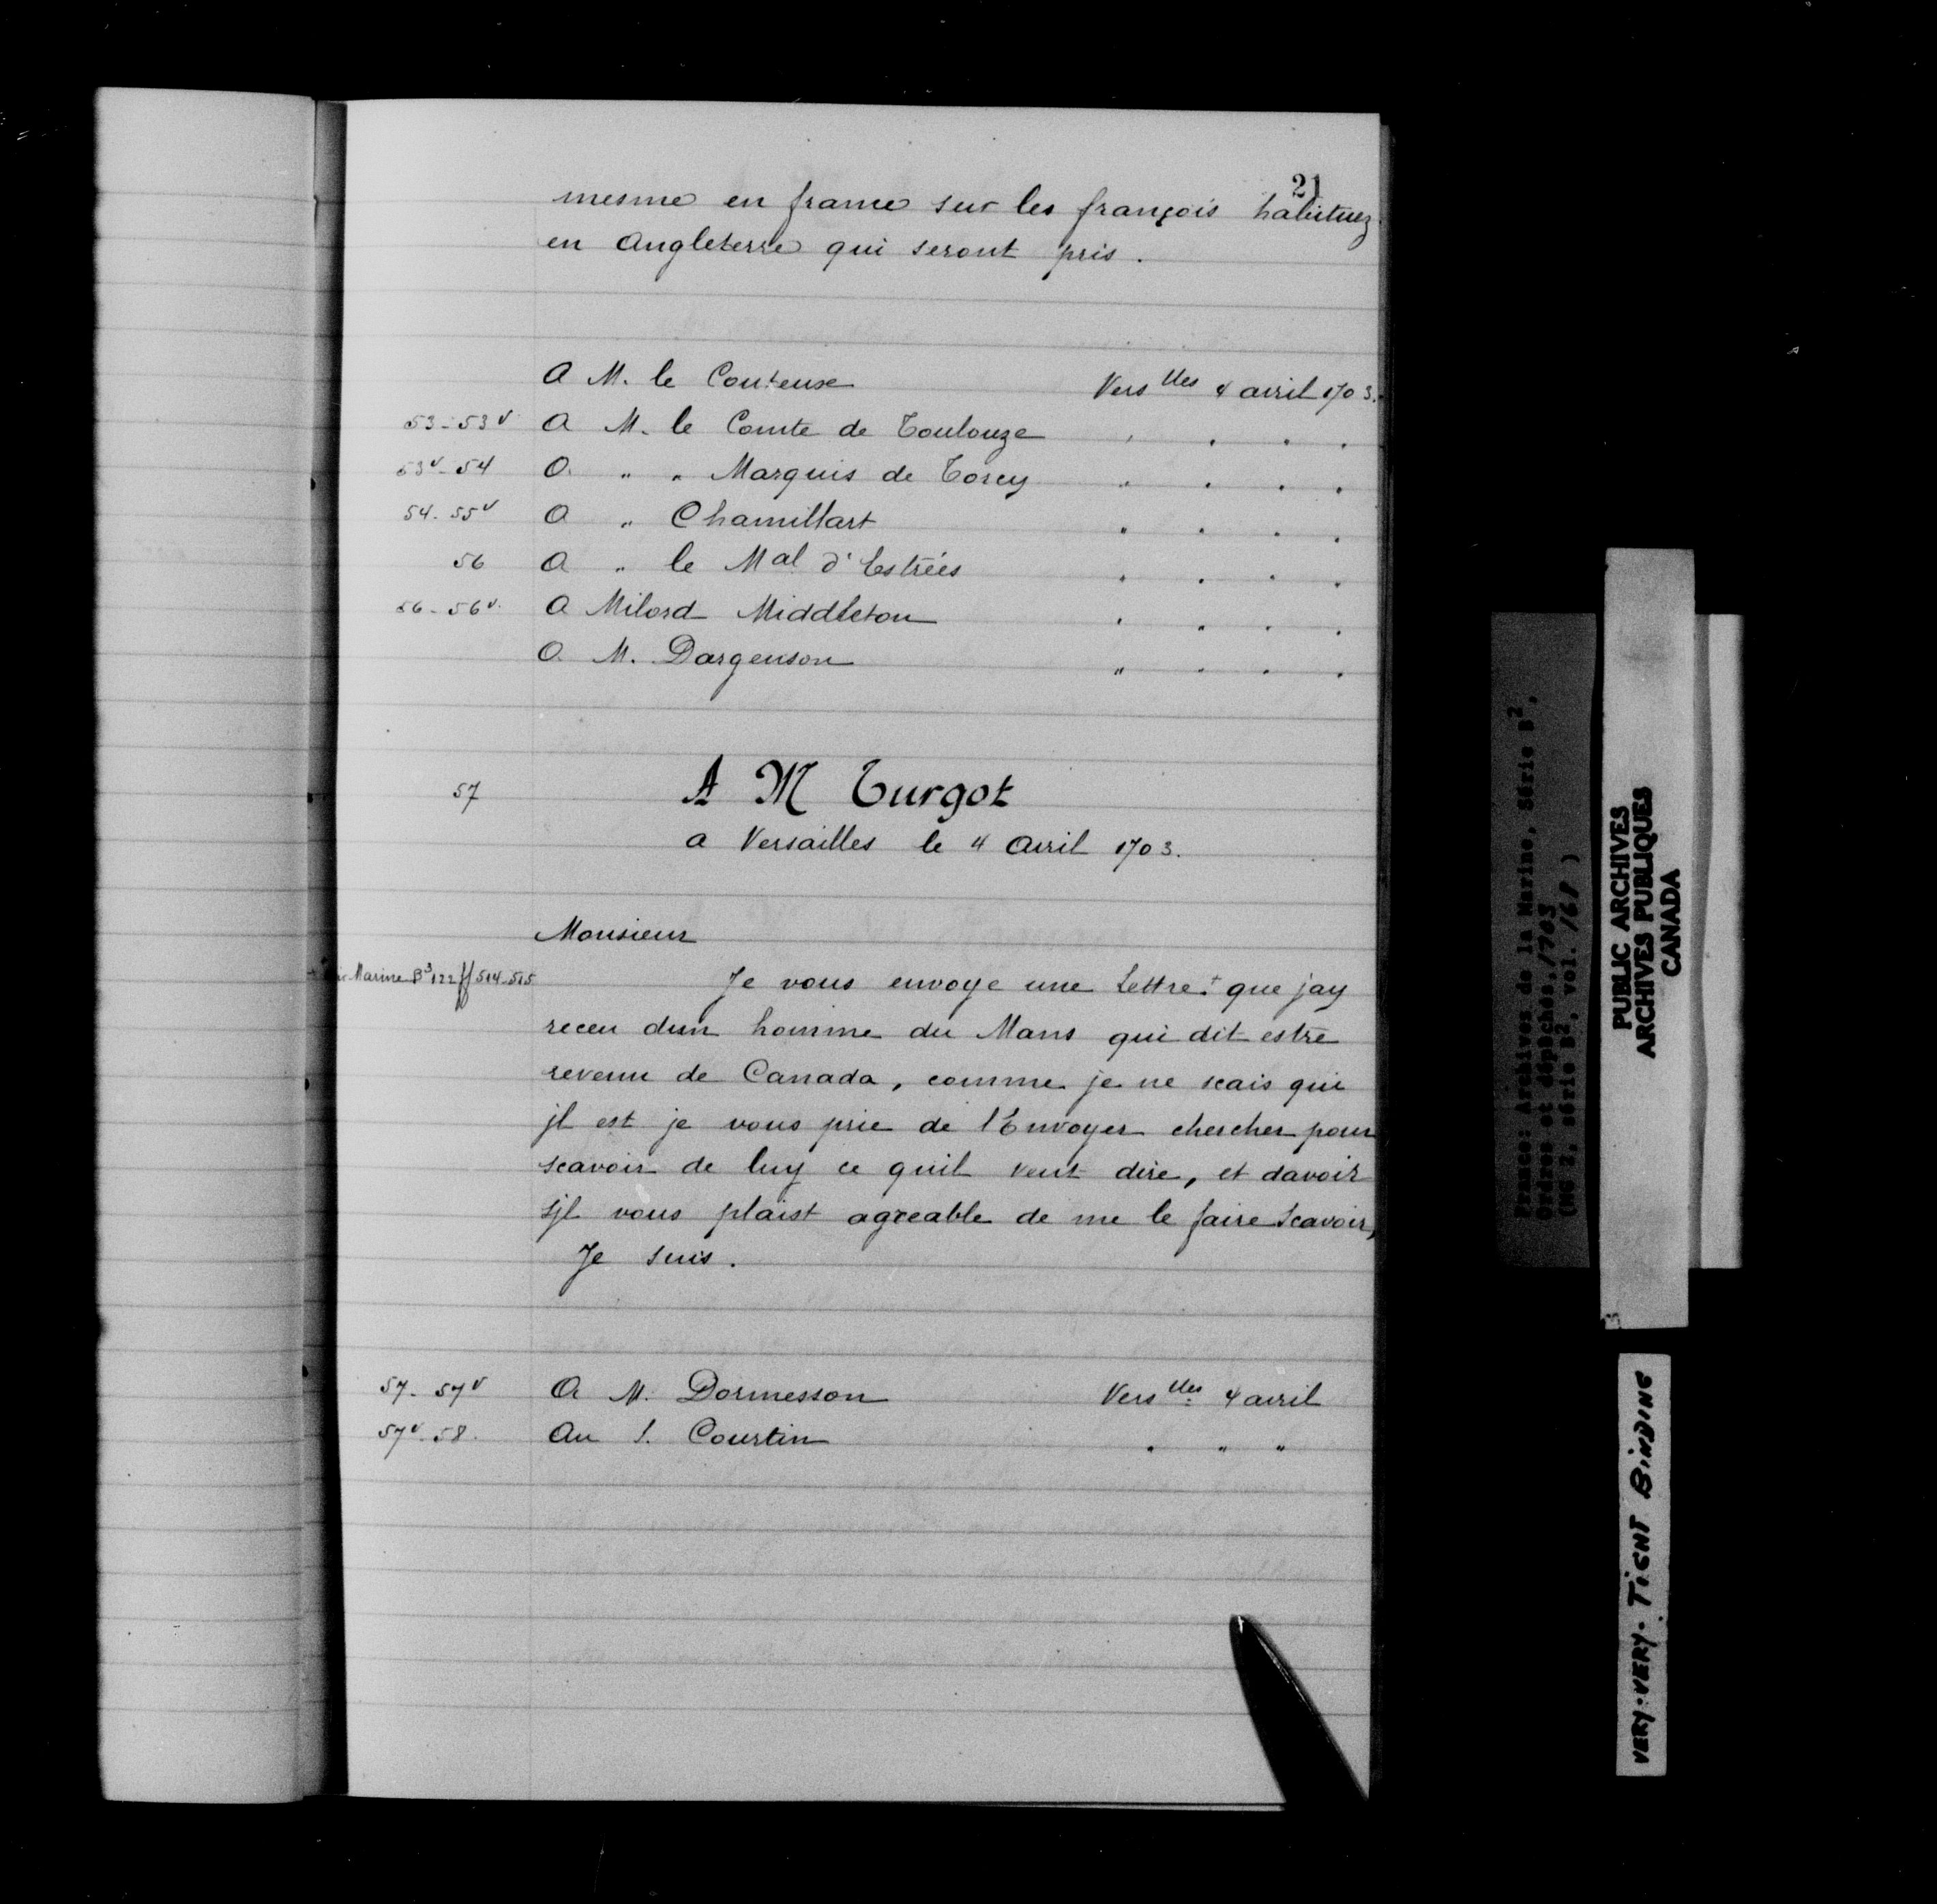 21
mesme en france sur les françois habituez
en Angleterre qui seront pris.
A M. le Couteux Vers lles 4 avril 1703.
53-53v A M. le Comte de Toulouze " " " "
53v-54 A " " Marquis de Torcy " " " "
54-55v A " Chamillart " " " "
56 A " le Mal d'Estrées " " " "
56-56v. A Milord Middleton " " " "
A M. Dargenson " " " "
57 A M Turgot
a Versailles le 4 Avril 1703.
Monsieur
Marine B3 122 ff 514-515 Je vous envoye une Lettre + que jay
receu dun homme du Mans qui dit estre
revenu de Canada, comme je ne scais qui
jl est je vous prie de l'Envoyer chercher pour
scavoir de luy ce quil veut dire, et davoir
sjl vous plaist agreable de me le faire Scavoir,
Je suis.
57-57v A M. Dormesson Vers lles 4 avril
57v-58. Au S. Courtin " " "
France: Archives de la Marine, Série B2,
Ordres et dépêches, 1703
(No 2, série B2, vol. 168)
PUBLIC ARCHIVES
ARCHIVES PUBLIQUES
CANADA
VERY-VERY-TIGHT BINDING